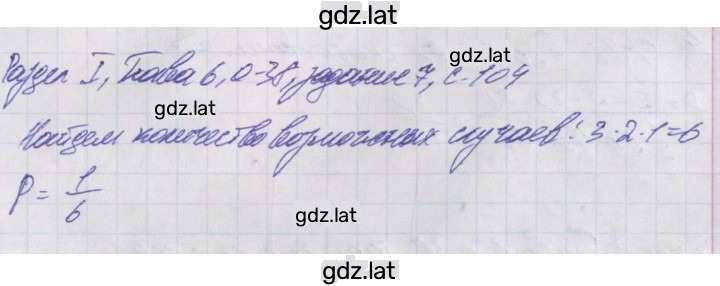 gdz.lat
Раздел I, Глава 6, О-38, задание 7, с. 104
gdz.lat
gdz.lat
Найдем количество возможных случаев: 3·2·1=6
gdz.lat
P = 1/6
gdz.lat
gdz.lat
gdz.lat